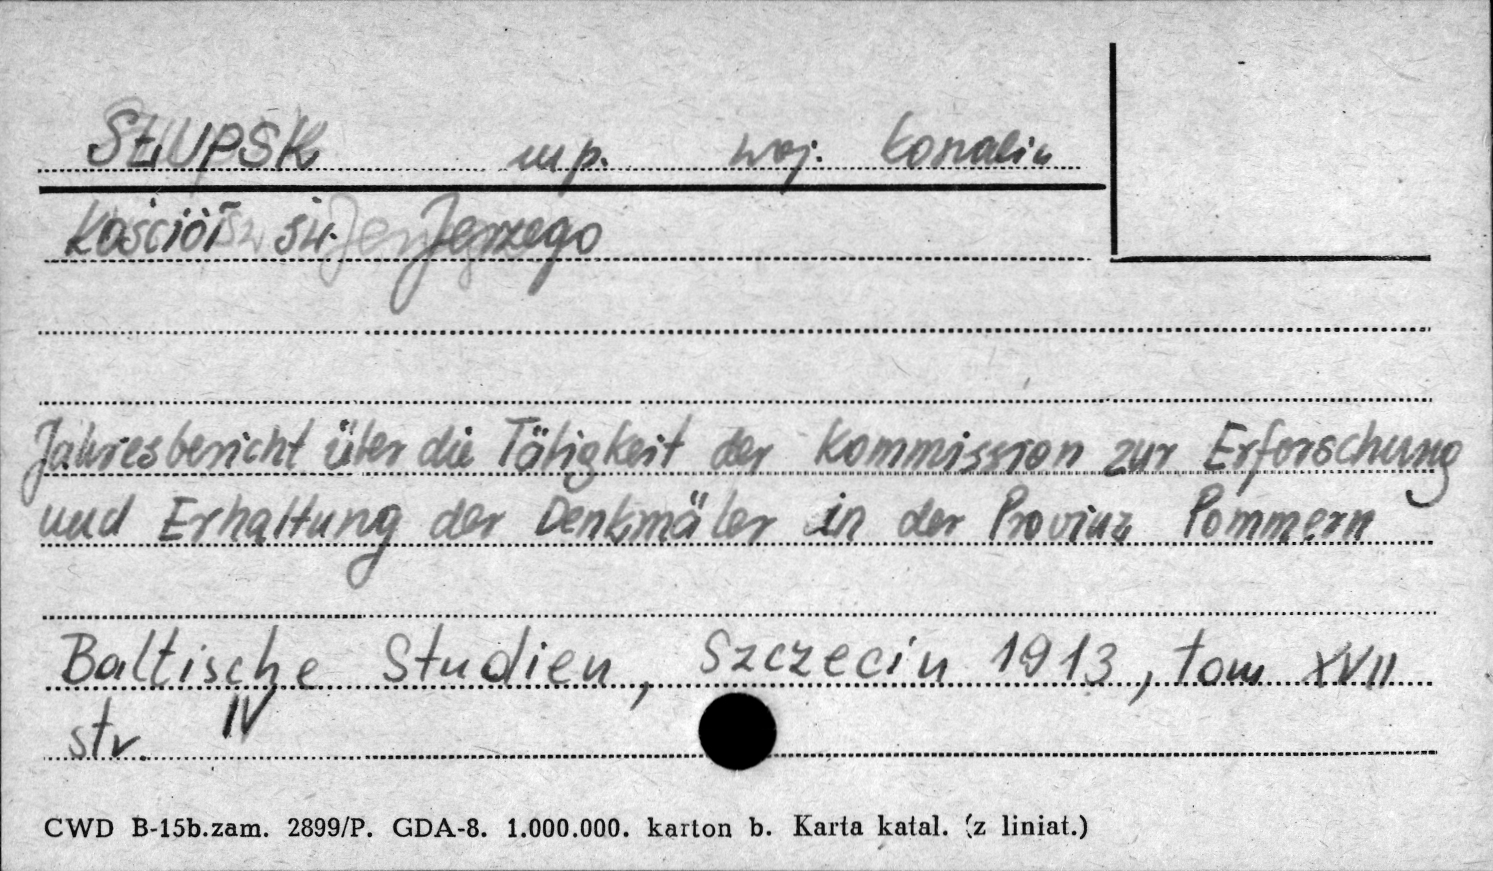 SŁUPSK m p. woj. koszalin
Kościół św. Jerzego
Jahresbericht über die Tätigkeit der Kommission zur Erforschung
und Erhaltung der Denkmäler in der Provinz Pommern
Baltische Studien, Szczecin 1913, tom XVII
str. IV
CWD B-15b.zam. 2899/P. GDA-8. 1.000.000. karton b. Karta katal. (z liniat.)